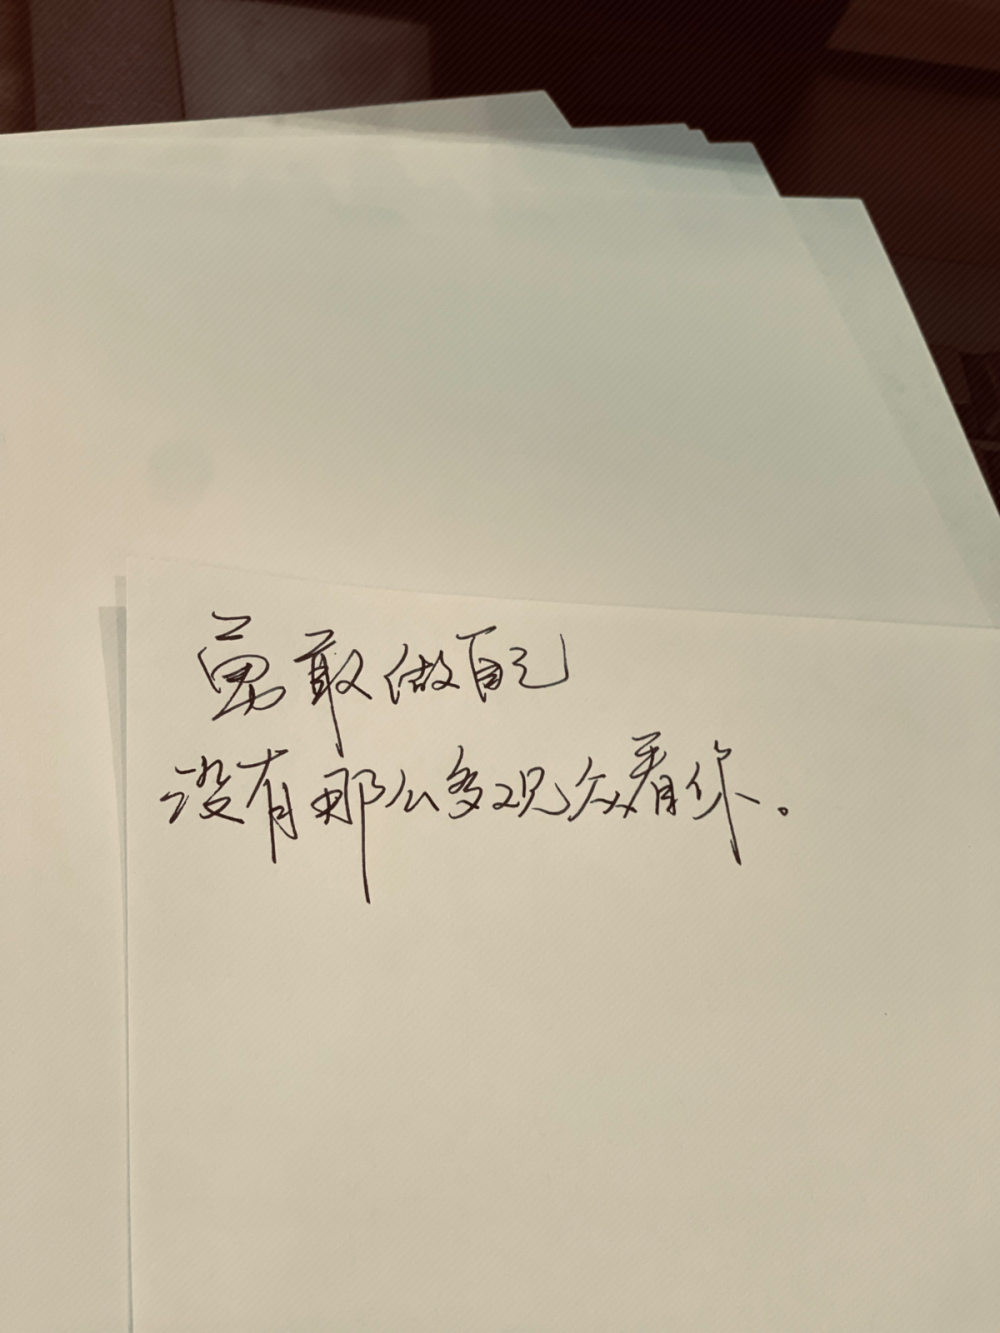 勇敢做自己
没有那么多观众看你。